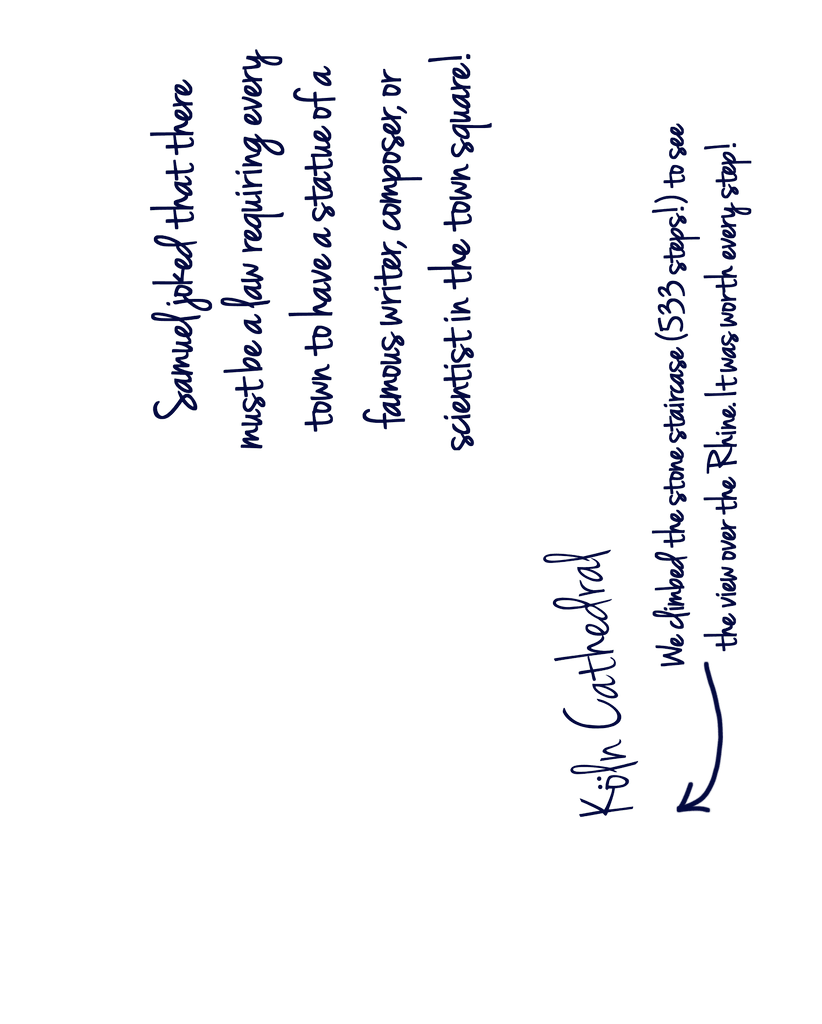 Samuel joked that there
must be a law requiring every
town to have a statue of a
famous writer, composer, or
scientist in the town square!
Köln Cathedral
We climbed the stone staircase (533 steps!) to see
the view over the Rhine. It was worth every step!